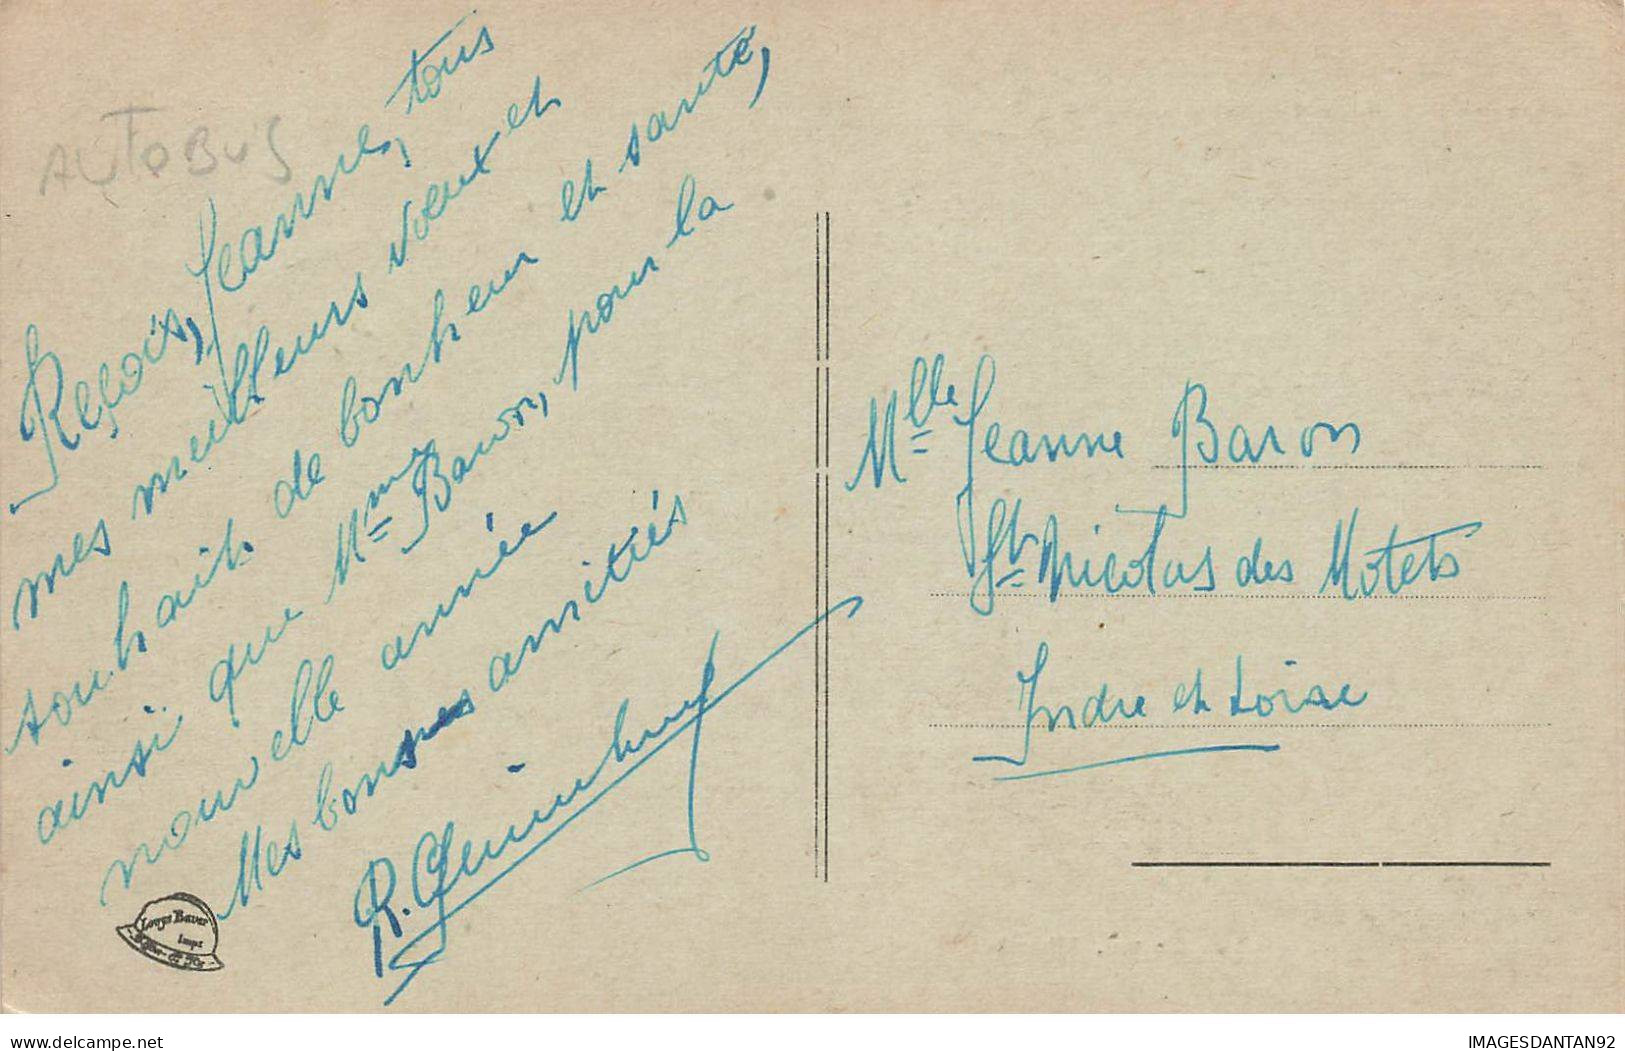 AUTOBUS
Reçois, Jeanne, tous
mes meilleurs voeux et
souhait de bonheur et santé,
ainsi que Mme Baron, pour la
nouvelle année
Mes bonnes amitiés
Mlle Jeanne Baron
St Nicolas des Motets
Indre et Loire
Louys Bauer
Impr
www.delcampe.net
IMAGESDANTAN92